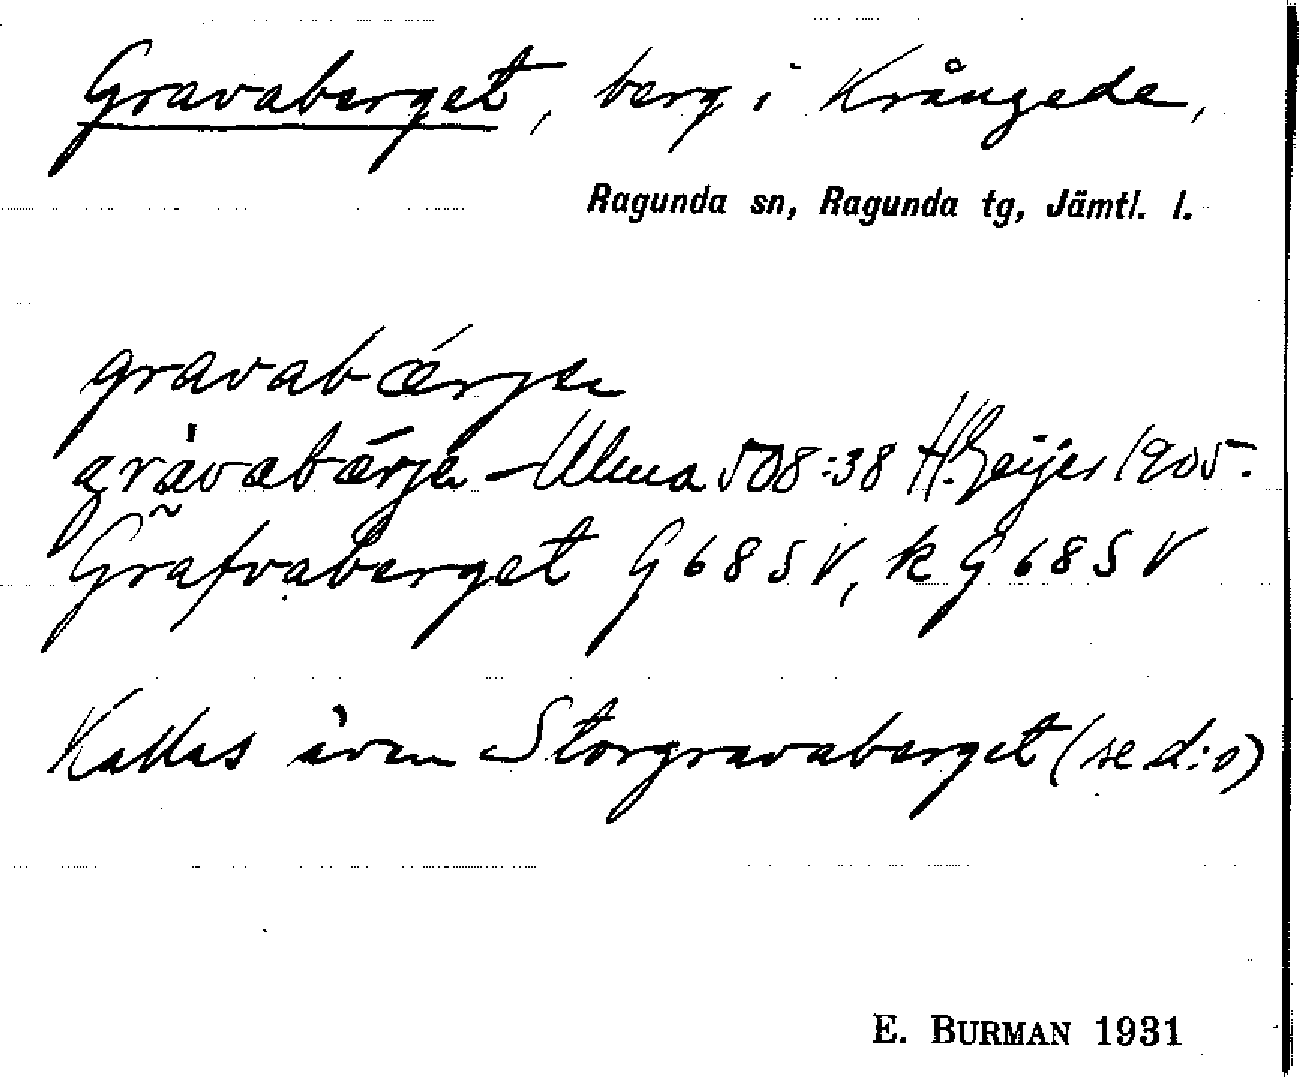 Gravaberget, berg i Krångede,
Ragunda sn, Ragunda tg, Jämtl. l.
gravabærjen
gràvabærjen Ulma 508:38 H. Geijer 1905.
Grafvaberget G 68 SV, k G 68 SV
Kallas även Storgravaberget (se d:o)
E. BURMAN 1931